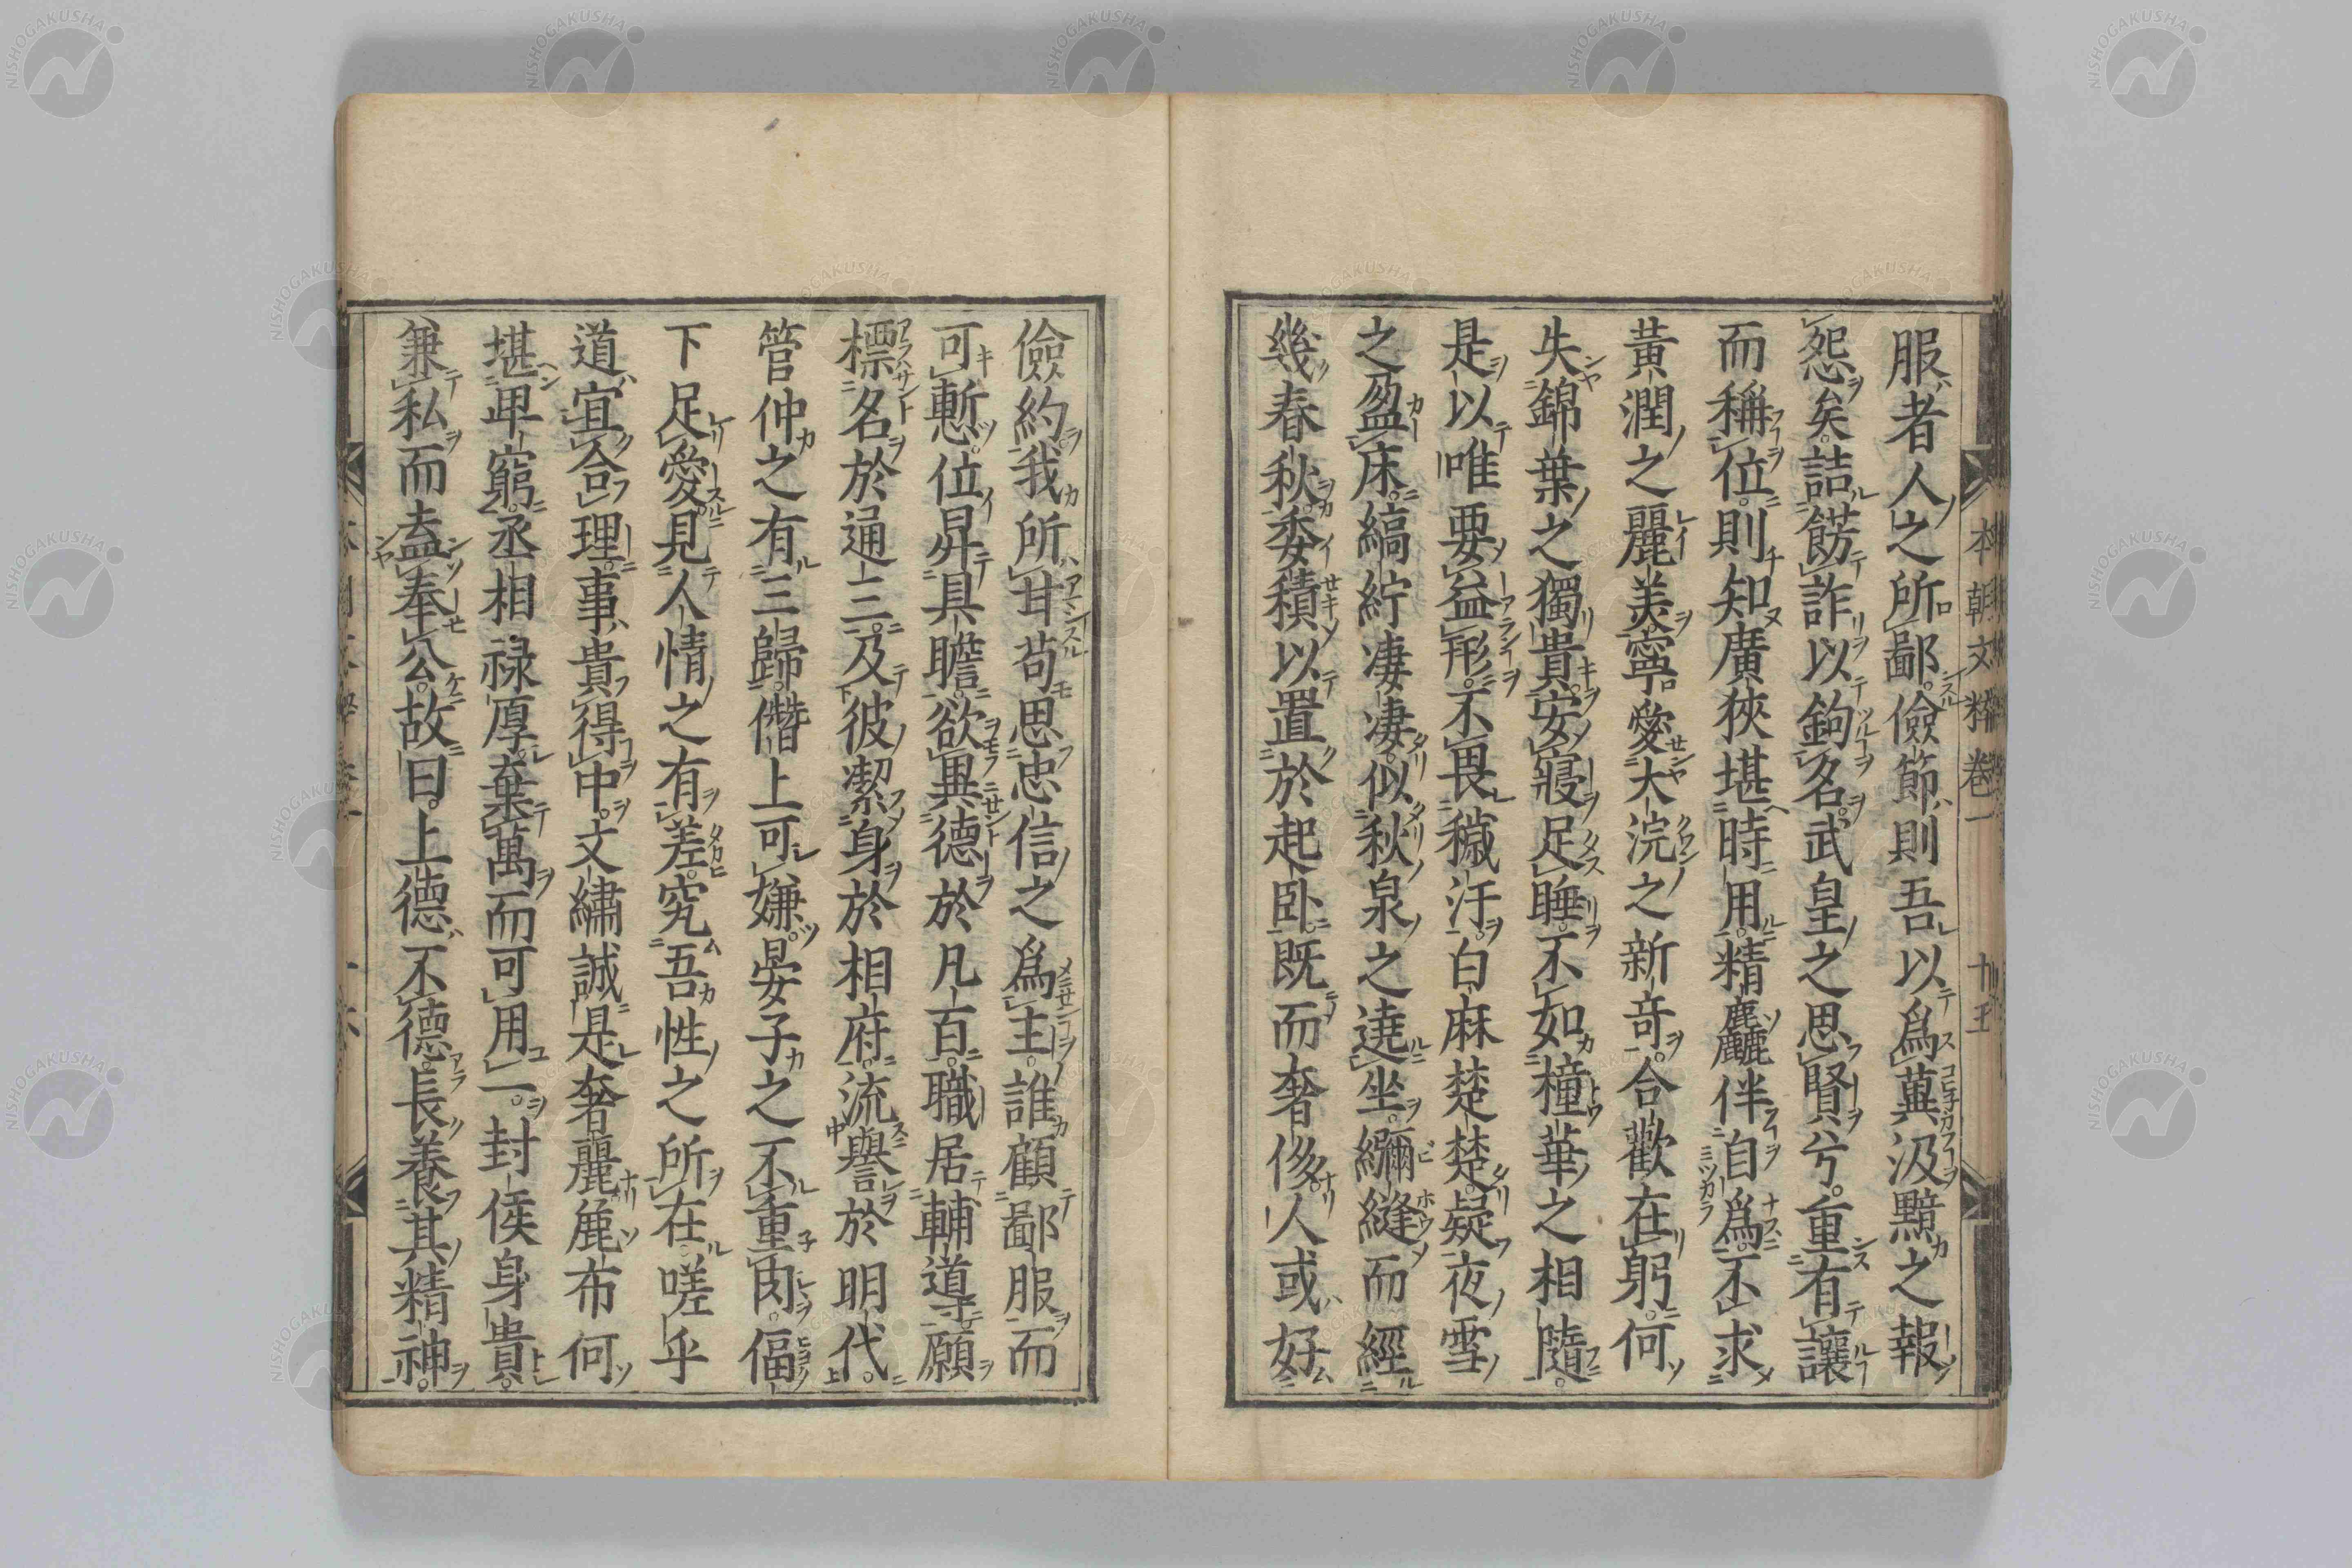 服者人之所鄙儉節則吾以爲冀汲黯之報
怨矣詰餝詐以鉤名武皇之思賢兮重有讓
而稱位則知廣狹堪時用精麤伴自爲不求
黄潤之麗美寧愛大浣之新竒合歡在躬何
失錦葉之獨貴安寢足睡不如橦華之相隨
是以唯要益形不畏穢汙白麻楚楚疑夜雪
之盈床縞紵凄凄似秋泉之遶坐繃縫而經
幾春秋委積以置於起卧既而奢侈人或好
儉約我所甘苟思忠信之爲主誰顧鄙服而
可慙位昇具瞻欲異德於凡百職居輔導願
標名於通三及彼潔身於相府流譽於明代
管仲之有三歸僭上可嫌晏子之不重肉偪
下足愛見人情之有差究吾性之所在嗟乎
道宜合理事貴得中文繡誠是奢麗麁布何
堪甲窮丞相禄厚棄萬而可用一封侯身貴
兼私而盍奉公故曰上德不德長養其精神
本朝文粹卷一
十五